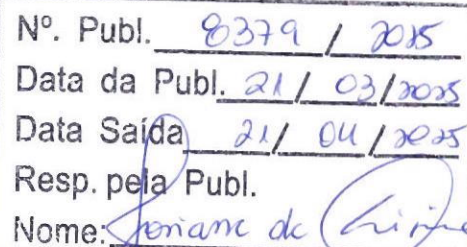 Nº. Publ. 8379 / 2025
Data da Publ. 21 / 03/2025
Data Saída 21/ 04 / 2025
Resp. pela Publ.
Nome: de